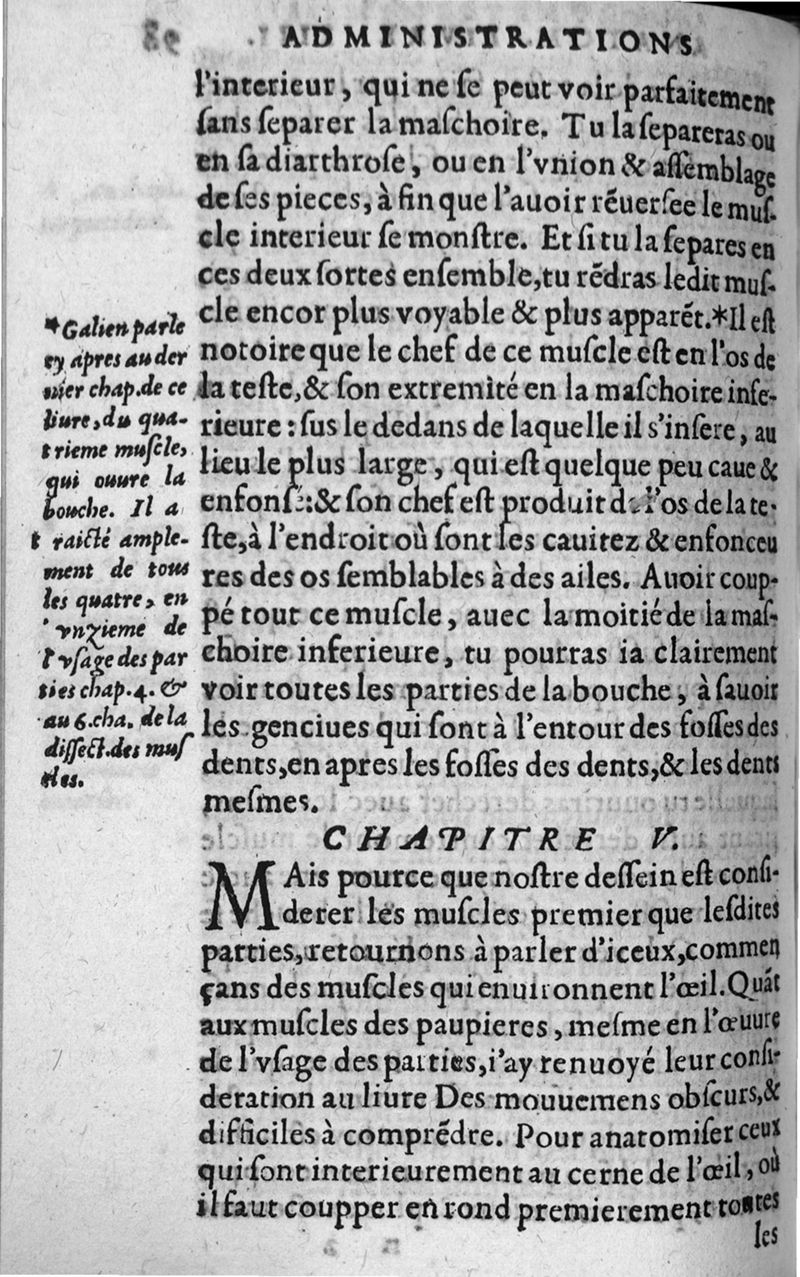 ADMINISTRATIONS
l'interieur, qui ne ſe peut voir parfaitement
ſans ſeparer la maſchoire. Tu la ſepareras ou
en ſa diarthroſe, ou en l'vnion & aſſemblage
de ſes pieces, à fin que l'auoir rēuerſee le muſ-
cle interieur ſe monſtre. Et ſi tu la ſepares en
ces deux ſortes enſemble, tu rēdras ledit muſ-
cle encor plus voyable & plus apparēt.*Il eſt
notoire que le chef de ce muſcle eſt en l'os de
la teſte, & ſon extremité en la maſchoire infe-
rieure : ſus le dedans de laquelle il s'inſere, au
lieu le plus large, qui eſt quelque peu caue &
enfonſé:& ſon chef eſt produit de l'os de la te-
ſte, à l'endroit où ſont les cauitez & enfonceu
res des os ſemblables à des ailes. Auoir coup-
pé tout ce muſcle, auec la moitié de la maſ-
choire inferieure, tu pourras ia clairement
voir toutes les parties de la bouche, à ſauoir
les genciues qui ſont à l'entour des foſſes des
dents, en apres les foſſes des dents, & les dents
meſmes.
*Galien parle
cy apres au der
nier chap.de ce
liure, du qua-
trieme muſcle,
qui ouure la
bouche. Il a
traicté ample-
ment de tous
les quatre, en
l'vnzieme de
l'vſage des par
ties chap.4. &
au 6.cha. de la
diſſect.des muſ
cles.
CHAPITRE V.
MAis pource que noſtre deſſein eſt conſi-
derer les muſcles premier que leſdites
parties, retournons à parler d'iceux, commen
çans des muſcles qui enuironnent l'œil. Quāt
aux muſcles des paupieres, meſme en l'œuure
de l'vſage des parties, i'ay renuoyé leur conſi-
deration au liure Des mouuemens obſcurs, &
difficiles à comprēdre. Pour anatomiſer ceux
qui ſont interieurement au cerne de l'œil, où
il faut coupper en rond premierement toutes
les